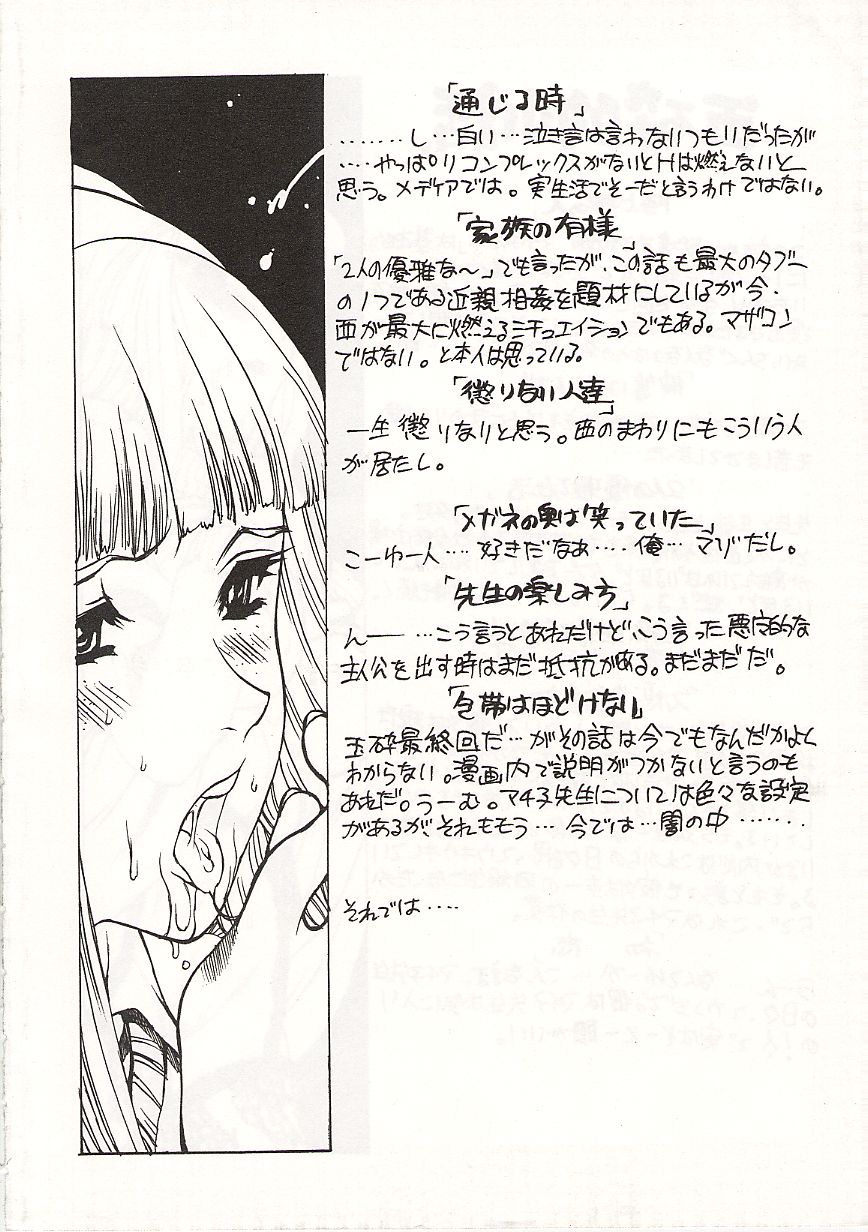 「通じる時」
‥‥‥‥し…白い…泣き言は言わないつもりだったが
‥‥やっぱりコンプレックスがないとHは燃えないと
思う。メディアでは。実生活でそーだと言うわけではない。
「家族の有様」
「2人の優雅な〜」でも言ったが、この話も最大のタブー
の1つである近親相姦を題材にしているが今、
西が最大に燃えるシチュエイションでもある。マザコン
ではない。と本人は思っている。
「懲りない人達」
一生懲りないと思う。西のまわりにもこういう人
が居たし。
「メガネの奥は笑っていた」
こーゆー人‥‥好きだなあ‥‥俺…マゾだし。
「先生の楽しみ方」
んー…こう言うとあれだけど、こう言った悪 的な
主人公を出す時はまだ抵抗がある。まだまだだ。
「包帯はほどけない」
玉砕最終回だ…がその話は今でもなんだかよく
わからない。漫画内で説明がつかないと言うのも
あれだ。うーむ。マチ子先生については色々な設定
があるが、それももう…今では…闇の中………
それでは‥‥